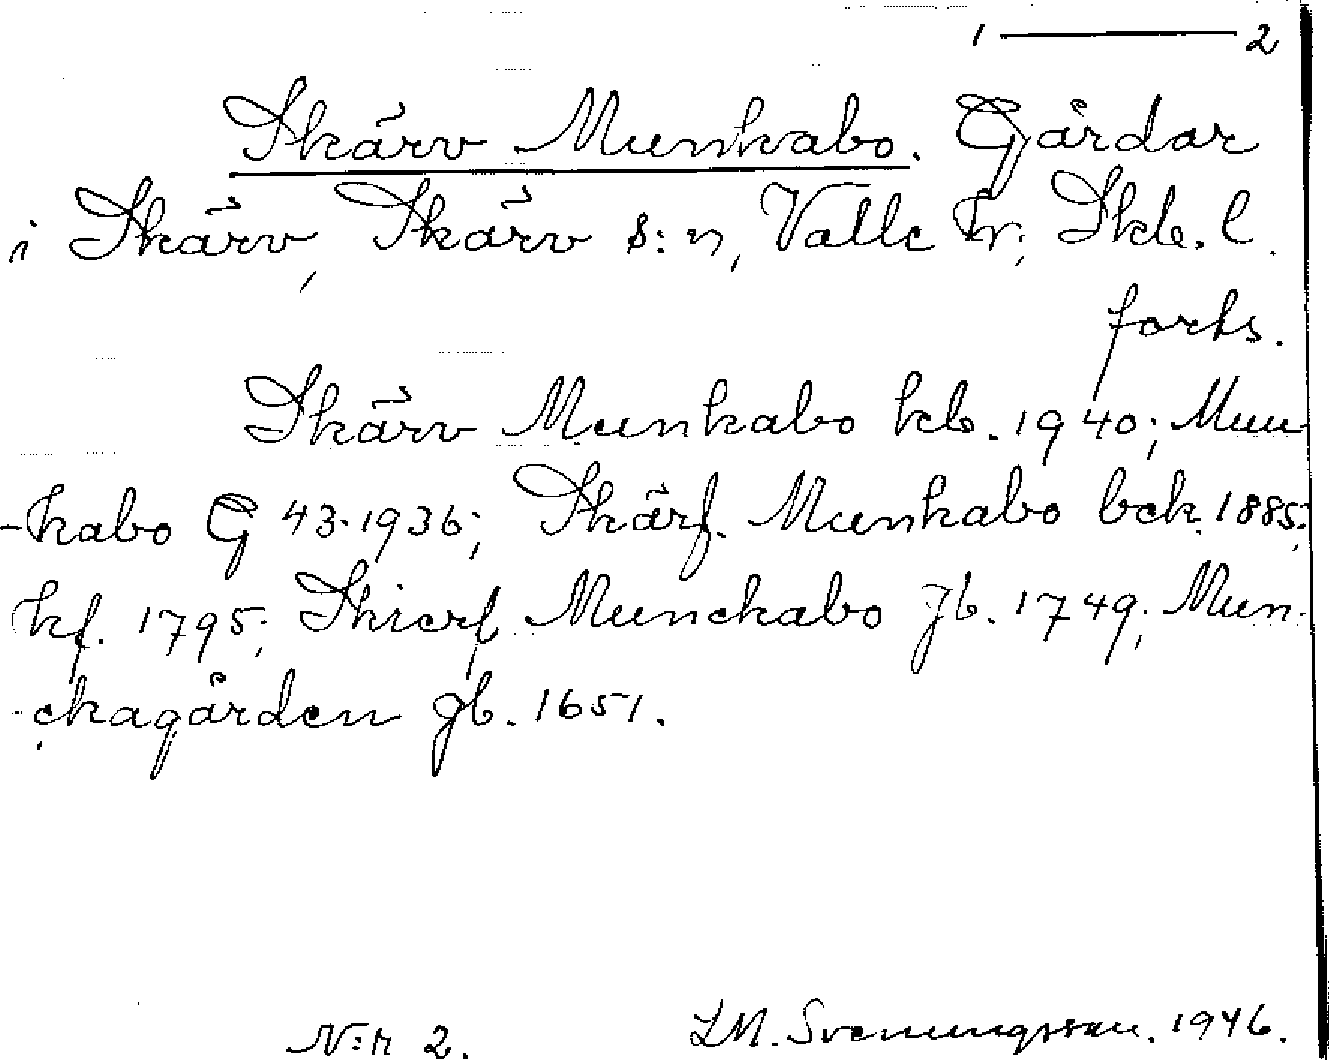 1 — 2
Skärv Munkabo. Gårdar
i Skärv, Skärv s:n, Valle hr, Skb. l.
forts.
Skärv Munkabo kb. 1940; Mun
-kabo G 43. 1936; Skärf. Munkabo bck. 1885;
kf. 1795; Skierf Munckabo jb. 1749; Mun-
ckagården jb. 1651.
N:r 2. I.M. Svenungsson. 1946.